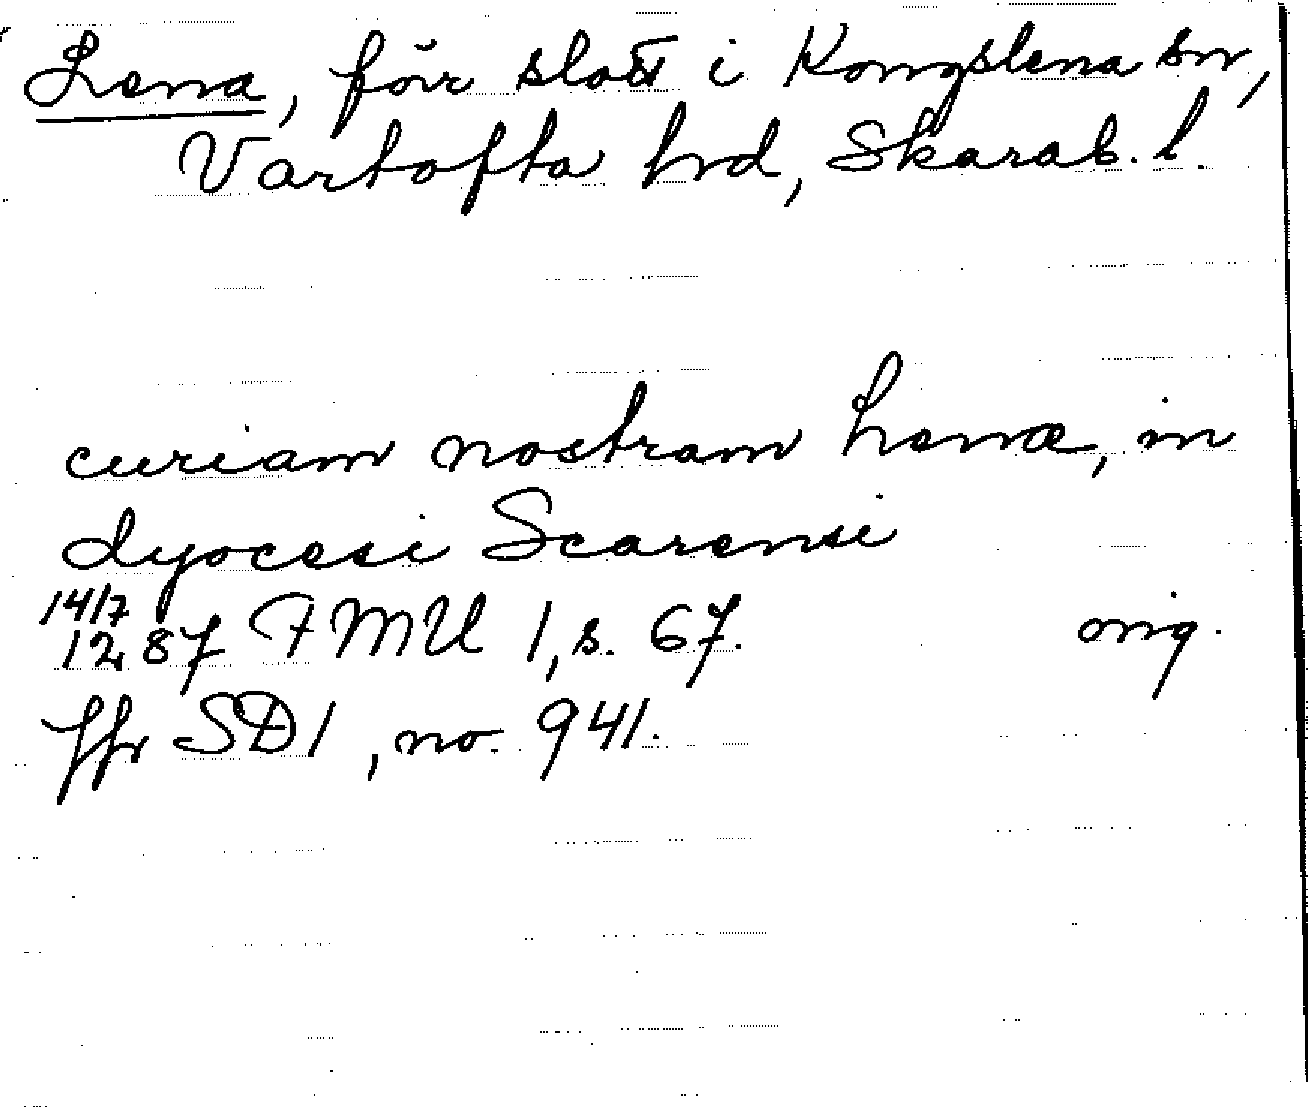 Lena, förr slott i Kongslena sn,
Vartofta hrd, Skarab. l.
curiam nostram Lenæ, in
dyocesi Scarensi
14/7
1287 FMU 1, s. 67. orig.
Jfr SD 1, no. 941.